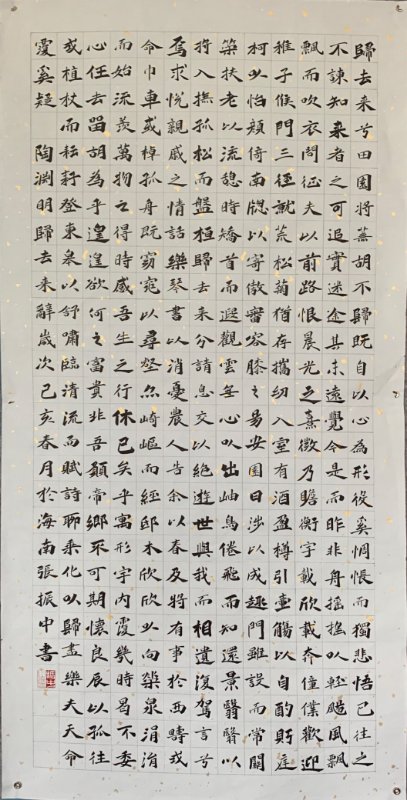 歸去来兮田園將蕪胡不歸既自以心為形役奚惆悵而獨悲悟已往之
不諫知来者之可追實迷途其未遠覺今是而昨非舟摇摇以輕颺風飄
飄而吹衣問征夫以前路恨晨光之熹微乃瞻衡宇載欣載奔僮僕歡迎
稚子候門三徑就荒松菊猶存攜幼入室有酒盈樽引壺觴以自酌眄庭
柯以怡顏倚南牕以寄傲審容膝之易安園日涉以成趣門雖設而常關
策扶老以流憩時矯首而遐觀雲無心以出岫鳥倦飛而知還景翳翳以
将入撫孤松而盤桓歸去来兮請息交以絕遊世與我而相遺復駕言兮
焉求悅親戚之情話樂琴書以消憂農人告余以春及将有事於西疇或
命巾車或棹孤舟既窈窕以尋壑亦崎嶇而經邱木欣欣以向榮泉涓涓
而始流羨萬物之得時感吾生之行休已矣乎寓形宇内復幾時曷不委
心任去留胡為乎遑遑欲何之富貴非吾願帝鄉不可期懷良辰以孤往
或植杖而耘耔登東皋以舒嘯臨清流而賦詩聊乘化以歸盡樂夫天命
復奚疑 陶淵明歸去来辭歲次己亥春月於海南張振中書